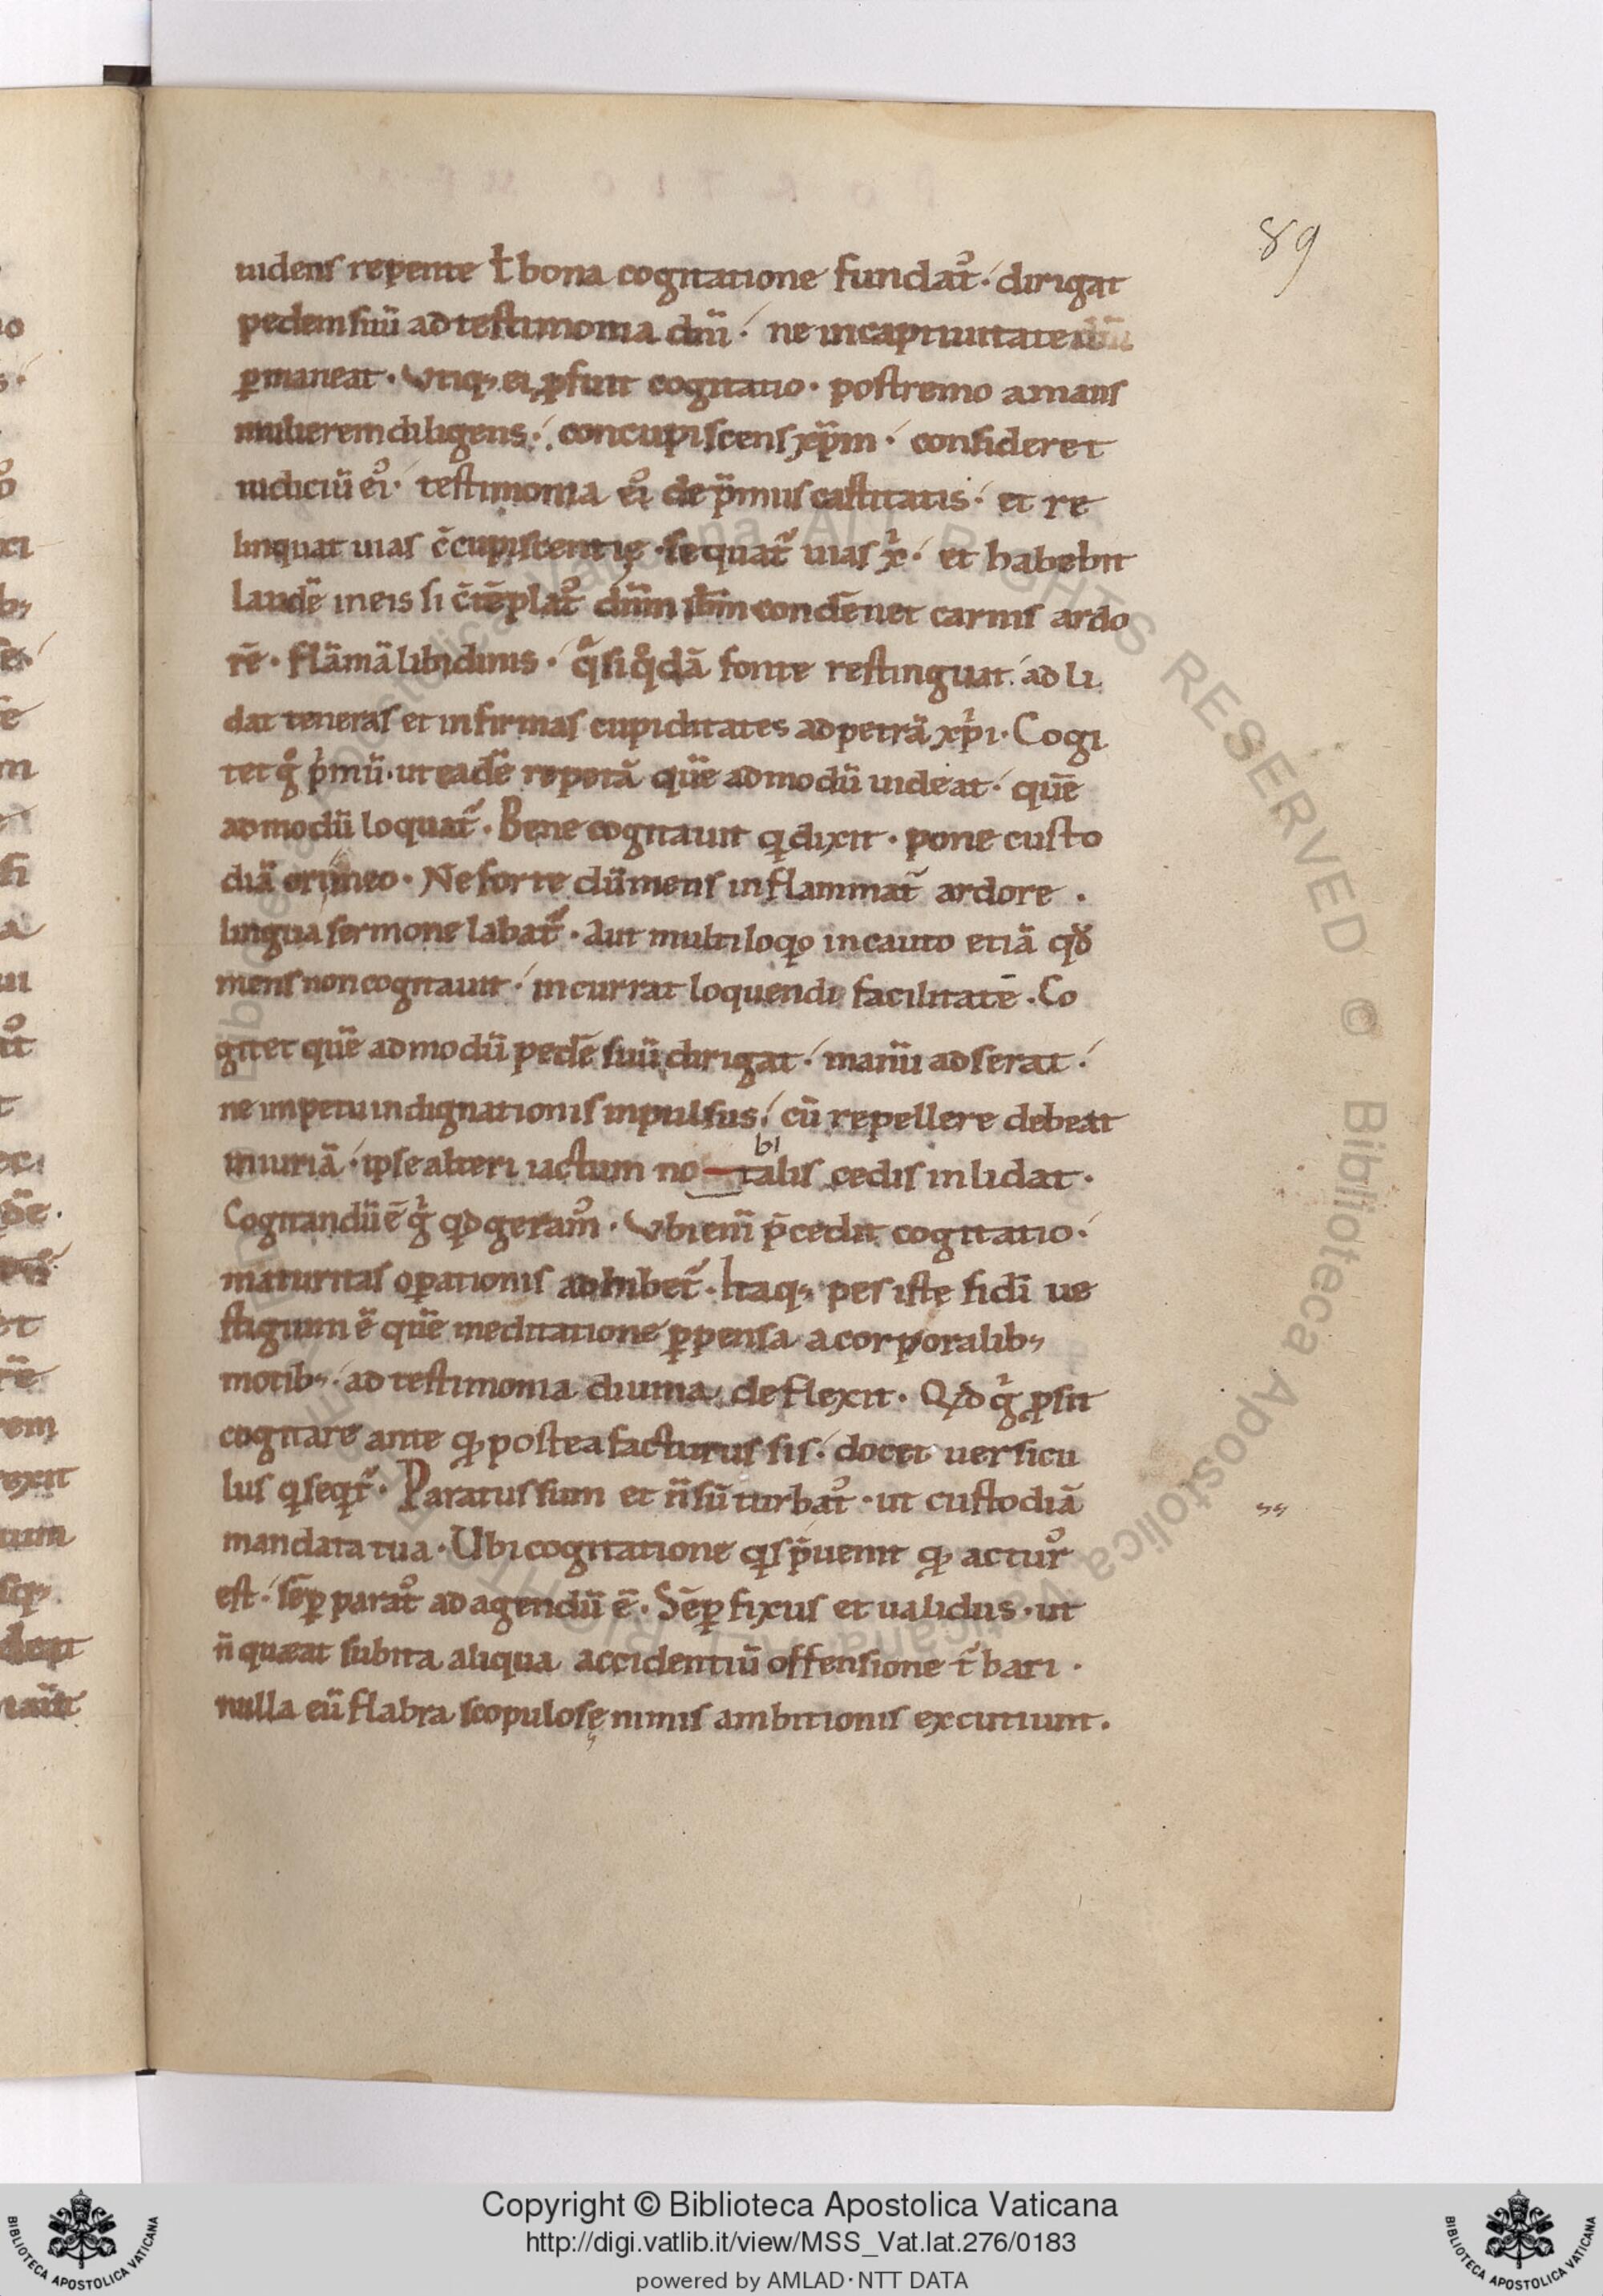 89
uidens repente ł bona cogitatione fundatꝰ. dirigat
pedem suũ ad testimonia dñi. ne in captiuitate diu
ꝑmaneat. Vtiq; ei ꝓfuit cogitatio. postremo amans
mulierem diligens. concupiscens xp̃m. consideret
iudiciũ eiꝰ. testimonia eiꝰ de p̃miis castitatis. et re
linquat uias c̃cupiscentię. sequat᷑ uias x̃. et habebit
laudẽ in eis si c̃tẽplatꝰ dñm ibm̃ condẽnet carnis ardo
rẽ. flãmã libidinis. q̃ si q̊dã fonte restinguat. adli
dat teneras et infirmas cupiditates ad petrã xp̃i. Cogi
tet g̊ p̃mũ. ut eadẽ repetã quẽ admodũ uideat. quẽ
admodũ loquat᷑. Bene cogitauit q dixit. pone custo
diã ori meo. Ne forte dũ mens inflammat᷑ ardore.
lingua sermone labat᷑. Aut multiloqo incauto etiã qđ
mens non cogitauit. incurrat loquendi facilitatẽ. Co
gitet quẽ admodũ pedẽ suũ dirigat. manũ adserat.
ne impetu indignationis inpulsus. cũ repellere debeat
bi
iniuriã. ipse alteri ictum no talis cedis inlidat.
Cogitandũ ẽ g̃ qd geramꝰ. Vbi eni᷑ p̃cedit cogitatio.
maturitas oꝑationis adhibet᷑. Itaq; per iste fidi᷑ ue
stigium ẽ quẽ meditatione ꝑpensa a corporalib;
motib;. ad testimonia diuina deflexit. Qđ g̃ ꝓsit
cogitare ante q postea facturus sis. docet uersicu
lus q seqt᷑. Paratus sum et ñ sũ turbatꝰ. ut custodiã
mandata tua. Vbi cogitatione qs p̃uenit q acturꝰ
est. sẽꝑ paratꝰ ad agendũ ẽ. Sẽꝑ fixus et ualidus. ut
ñ queat subita aliqua accidentiũ offensione t᷑bari.
nulla eũ flabra scopulosę nimis ambitionis excutiunt.
Copyright © Biblioteca Apostolica Vaticana
http://digi.vatlib.it/view/MSS_Vat.lat.276/0183
powered by AMLAD·NTT DATA
BIBLIOTECA APOSTOLICA VATICANA
BIBLIOTECA APOSTOLICA VATICANA